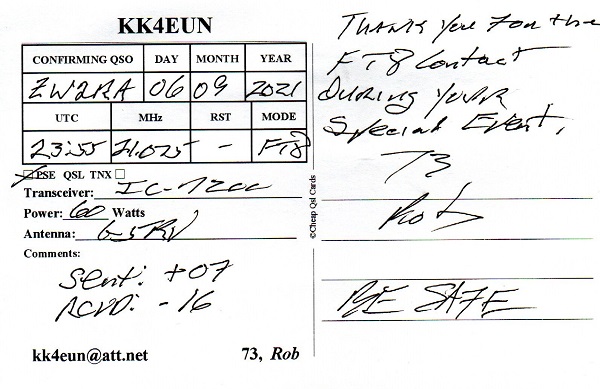 KK4EUN
CONFIRMING QSO DAY MONTH YEAR
ZW2RA 06 09 2021
UTC MHz RST MODE
23:55 21.075 - FT8
PSE QSL TNX
Transceiver: IC-7200
Power: 60 Watts
Antenna: G5RV
Comments:
Sent: +07
RCVD: -16
kk4eun@att.net 73, Rob
©Cheap Qsl Cards
THANK you FOR the
FT8 Contact
DURING YOUR
Special Event,
73
Rob
BE SAFE